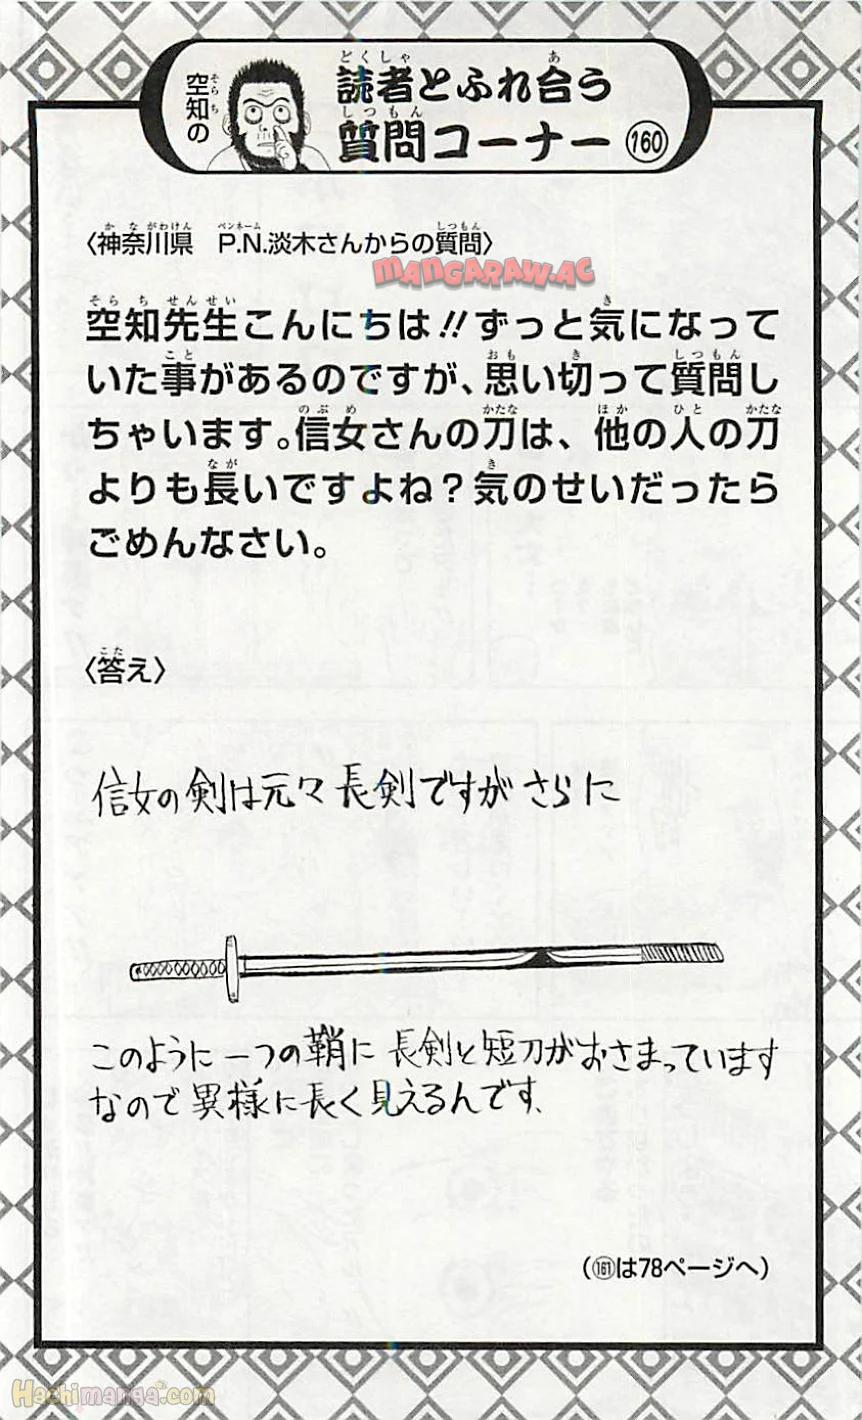 空知の
読者とふれ合う
質問コーナー 160
〈神奈川県　P.N.淡木さんからの質問〉
MANGARAW.AC
空知先生こんにちは!!ずっと気になって
いた事があるのですが、思い切って質問し
ちゃいます。信女さんの刀は、他の人の刀
よりも長いですよね？気のせいだったら
ごめんなさい。
〈答え〉
信女の剣は元々長剣ですがさらに
このように一つの鞘に長剣と短刀がおさまっています
なので異様に長く見えるんです、
（161は78ページへ）
Hachimanga.com